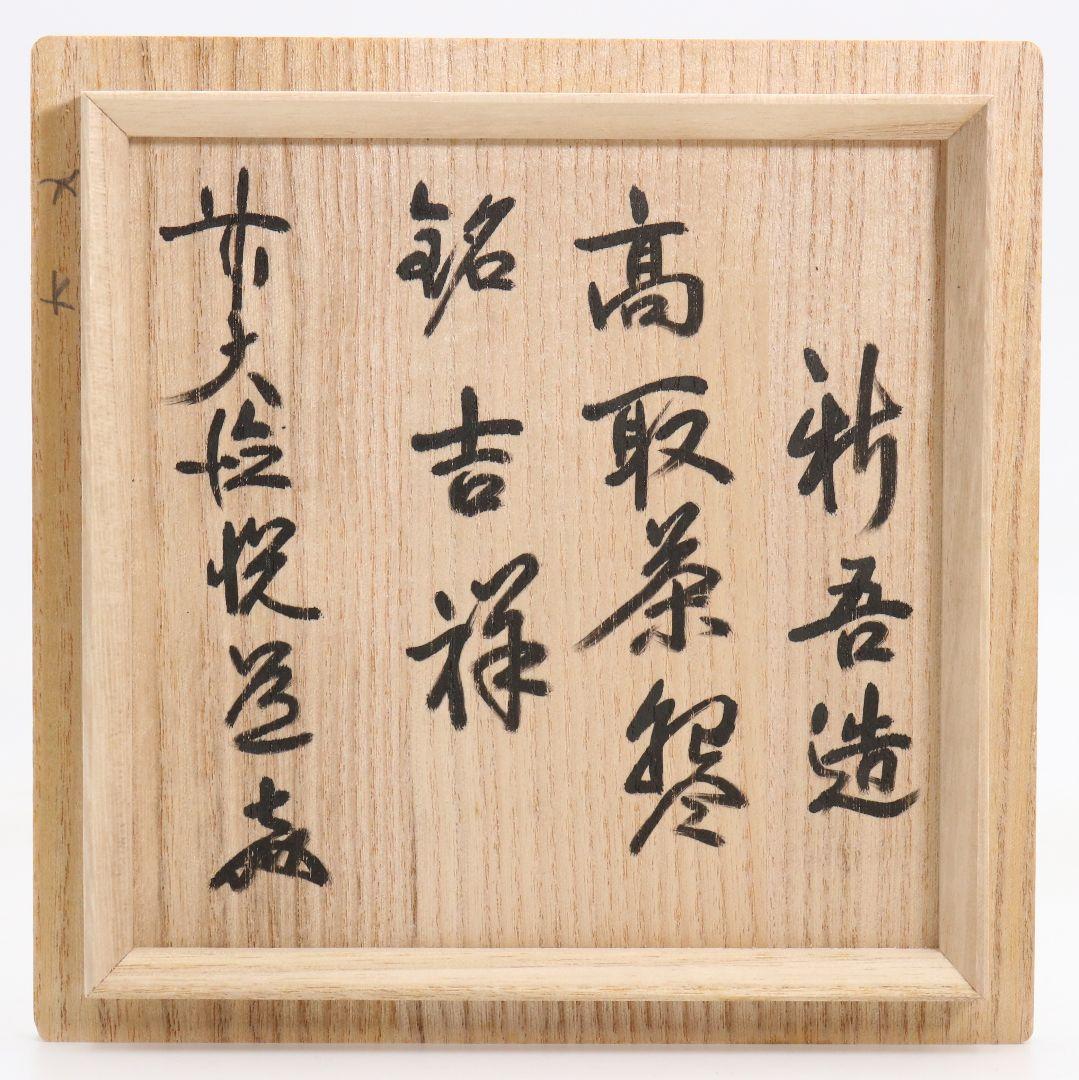 新吾造
高取茶盌
銘吉祥
前大徳悦道